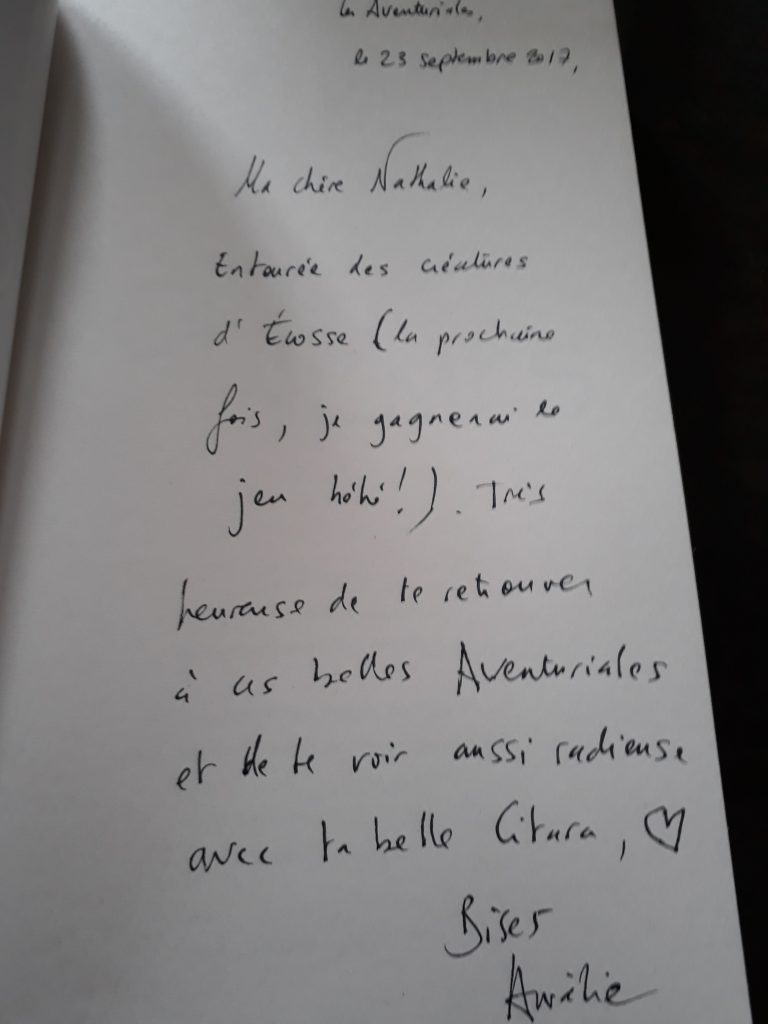 les Aventuriales,
le 23 septembre 2017,
Ma chère Nathalie,
Entourée des créatures
d'Écosse (la prochaine
fois, je gagnerai le
jeu héhé!). Très
heureuse de te retrouver
à ces belles Aventuriales
et de te voir aussi radieuse
avec ta belle Citara, ♡
Bises
Aurélie